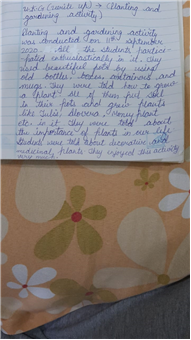 U.K.G (write up) → (Planting and
gardening activity)
Planting and gardening activity
was conducted on 11th september
2020. All the students partici
pated enthusiastically in it. They
used beautiful pots by using
old bottles, boxes, containers and
mugs. They were told how to grow
a plant. All of them put soil
in their pots and grew plants
like Tulsi, Aloevera, Money plant
etc in it. They were told about
the importance of plants in our life.
Students were told about decorative and
medicinal plants. They enjoyed this activity
very much.